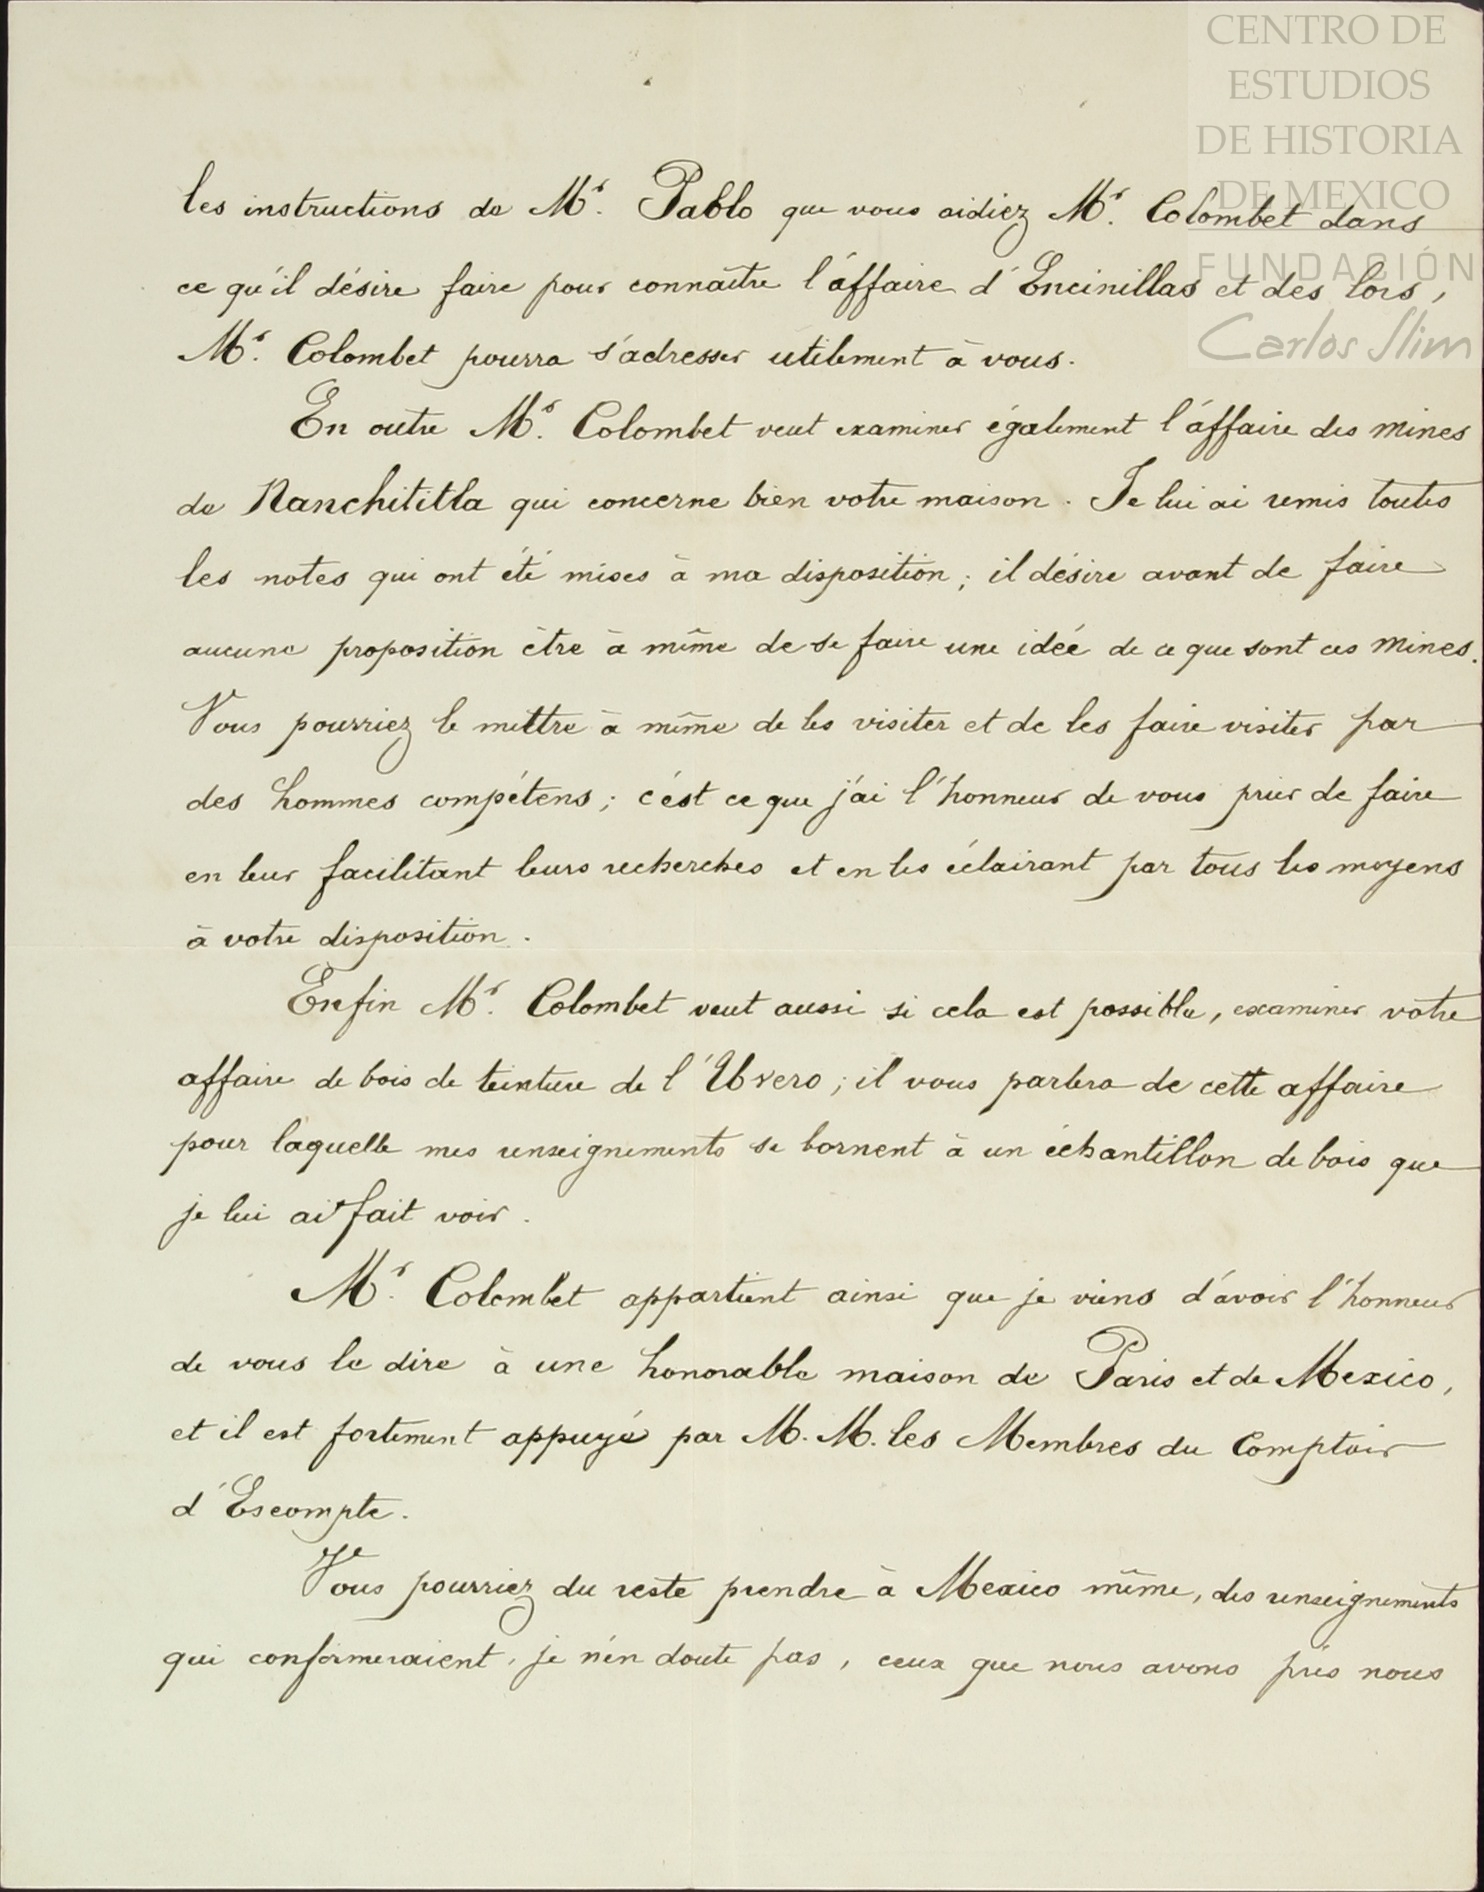 CENTRO DE
ESTUDIOS
DE HISTORIA
DE MEXICO
FUNDACIÓN
Carlos Slim
les instructions de Mr. Pablo que vous aidiez Mr. Colombet dans
ce qu'il désire faire pour connaître l'affaire d'Encinillas et dès lors,
Mr. Colombet pourra s'adresser utilement à vous.
En outre Mr. Colombet veut examiner également l'affaire des mines
de Nanchititla qui concerne bien votre maison. Je lui ai remis toutes
les notes qui ont été mises à ma disposition; il désire avant de faire
aucune proposition être à même de se faire une idée de ce que sont ces mines.
Vous pourriez le mettre à même de les visiter et de les faire visiter par
des hommes compétens; c'est ce que j'ai l'honneur de vous prier de faire
en leur facilitant leurs recherches et en les éclairant par tous les moyens
à votre disposition.
Enfin Mr. Colombet veut aussi si cela est possible, examiner votre
affaire de bois de teinture de l'Uvero; il vous parlera de cette affaire
pour laquelle mes renseignements se bornent à un échantillon de bois que
je lui ai fait voir.
Mr. Colombet appartient ainsi que je viens d'avoir l'honneur
de vous le dire à une honorable maison de Paris et de Mexico,
et il est fortement appuyé par M. M. les Membres du Comptoir
d'Escompte.
Vous pourriez du reste prendre à Mexico même, des renseignements
qui confirmeraient, je n'en doute pas, ceux que nous avons pris nous